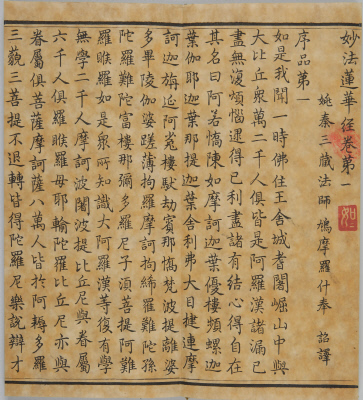 妙法蓮華經卷第一
姚秦三藏法師鳩摩羅什奉 詔譯
序品第一
如是我聞一時佛住王舍城耆闍崛山中與
大比丘眾萬二千人俱皆是阿羅漢諸漏已
盡無復煩惱逮得已利盡諸有結心得自在
其名曰阿若憍陳如摩訶迦葉優樓頻螺迦
葉伽耶迦葉那提迦葉舍利弗大目揵連摩
訶迦旃延阿㝹樓馱劫賓那憍梵波提離婆
多畢陵伽婆蹉薄拘羅摩訶拘絺羅難陀孫
陀羅難陀富樓那彌多羅尼子須菩提阿難
羅睺羅如是眾所知識大阿羅漢等復有學
無學二千人摩訶波闍波提比丘尼與眷屬
六千人俱羅睺羅母耶輸陀羅比丘尼亦與
眷屬俱菩薩摩訶薩八萬人皆於阿耨多羅
三藐三菩提不退轉皆得陀羅尼樂說辯才